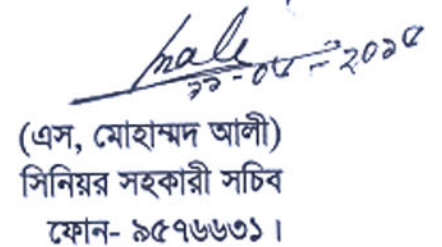 ১১-০৫-২০১৫
(এস, মোহাম্মদ আলী)
সিনিয়র সহকারী সচিব
ফোন- ৯৫৭৬৬৩১।